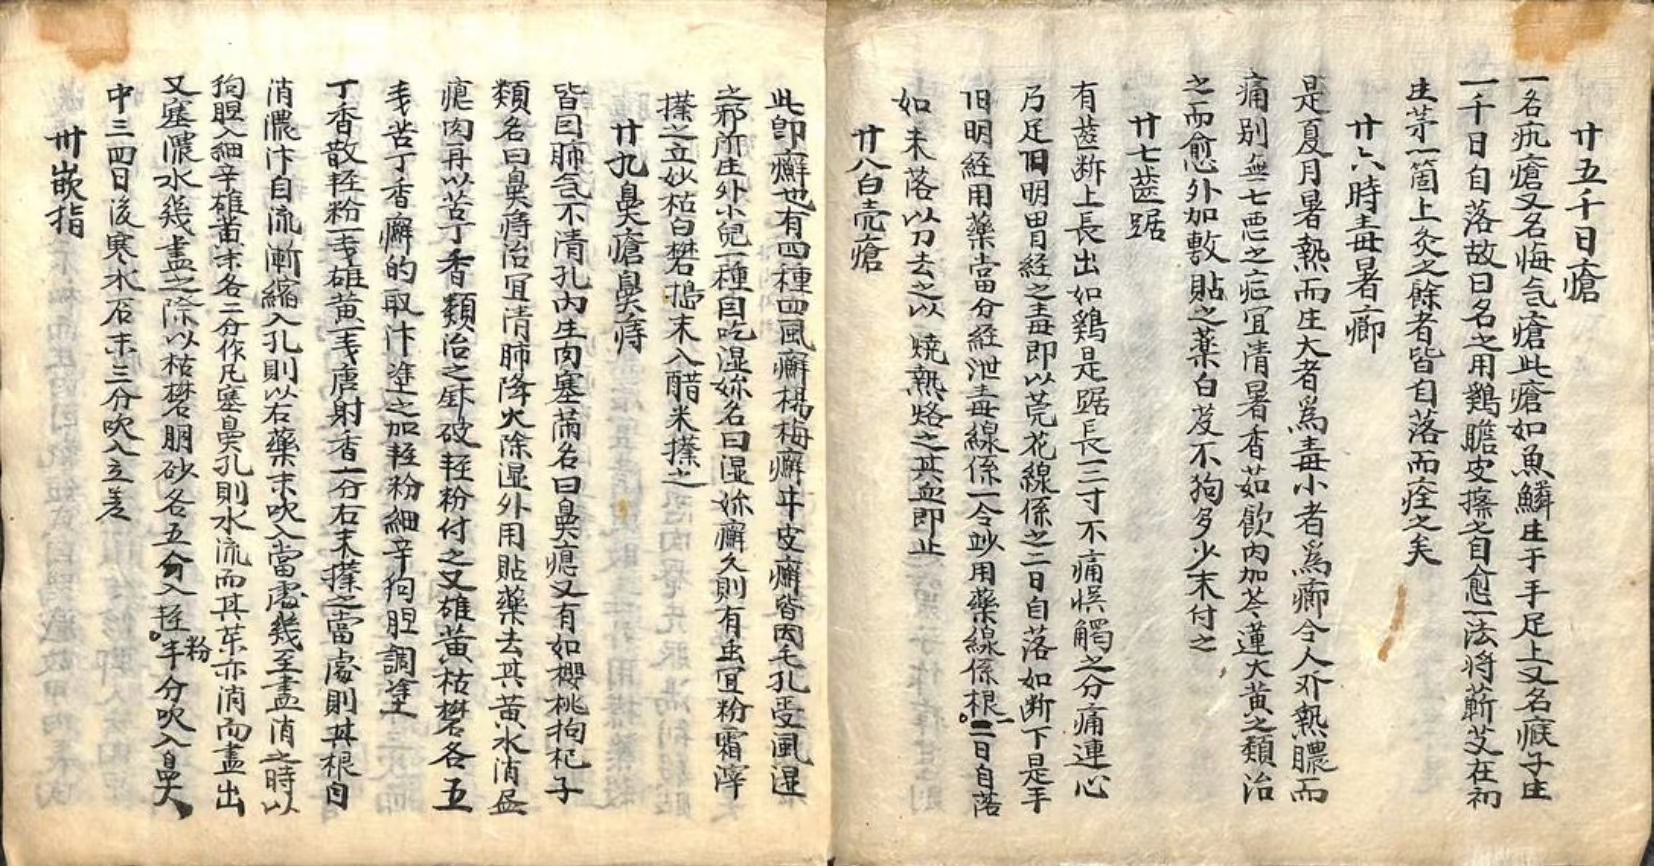 廿五千日瘡
一名疣瘡又名悔氣瘡此瘡如魚鱗生于手足上又名瘊子生
一千日自落故曰名之用鷄膽皮擦之自愈一法將蘄艾在初
生茅一箇上灸之餘者皆自落而痊之矣
廿六時毒暑癤
是夏月暑熱而生大者爲毒小者爲癤令人外熱膿而
痛别無七惡之症宜清暑香茹飲内加苓蓮大黄之類治
之而愈外加敷貼之藥白芨不狗多少末付之
廿七齒踞
有齒断上長出如鷄是踞長三寸不痛悞觸之分痛連心
乃足旧明胃経之毒即以芫花線係之二日自落如断下是手
旧明経用藥當分経泄毒線係一仝妙用藥線係根二日自落
如未落以刀去之以燒熱烙之其血即止
廿八白壳瘡
此卽癬也有四種四風癬楊梅癬牛皮癬皆因毛孔受風湿
之邪所生外小兒一種自吃湿妳名曰湿妳癬久則有虫宜粉霜滓
搽之立妙枯白礬搗末入醋米搽之
廿九鼻瘡鼻痔
皆曰肺氣不清孔内生肉塞䓣名曰鼻瘜又有如櫻桃狗杞子
類名曰鼻痔治宜清肺降火除湿外用貼藥去其黄水消
瘜肉再以苦丁香類治之針破輊粉付之又雄黄枯礬各五
戋苦丁香癬的取汴塗之加輊粉細辛狗胆調塗
丁香散輊粉一戋雄黄一戋唐射香一分右末搽之當處則其根自
消膿汴自流漸縮入孔則以右藥末吹入當處幾至盡消之時以
狗胆入細辛雄黄末各二分作凡塞鼻孔則水流而其菜亦消而盡出
又塞膿水幾盡之際以枯礬朋砂各五分入輊粉半分吹入鼻
中三四日後寒水石末三分吹入立差
卅嵌指